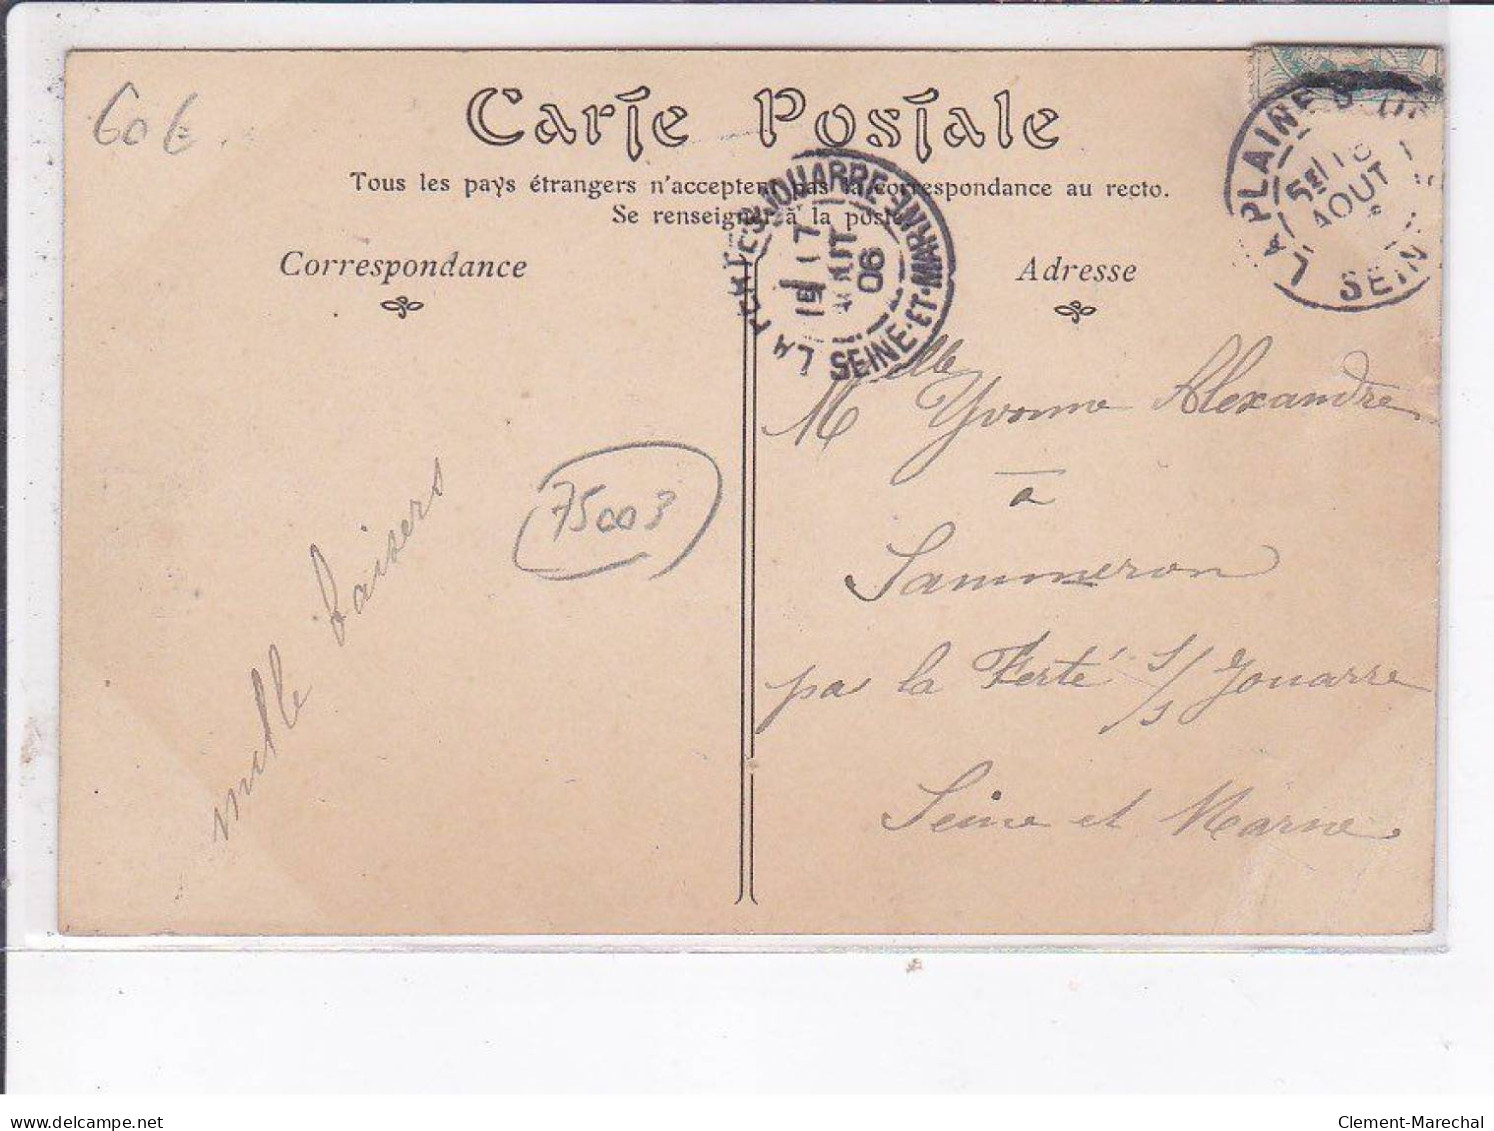 60€
Carte Postale
Tous les pays étrangers n'acceptent pas la correspondance au recto.
Se renseigner à la poste.
LA FERTÉ-S-JOUARRE
17
06
SEINE-ET-MARNE
LA PLAINE
AOUT
SEINE
Correspondance
Adresse
mille baisers
75003
Melle Yvonne Alexandre
a
Sammeron
par la Ferté s/s Jouarre
Seine et Marne.
delcampe.net
Clement-Marechal